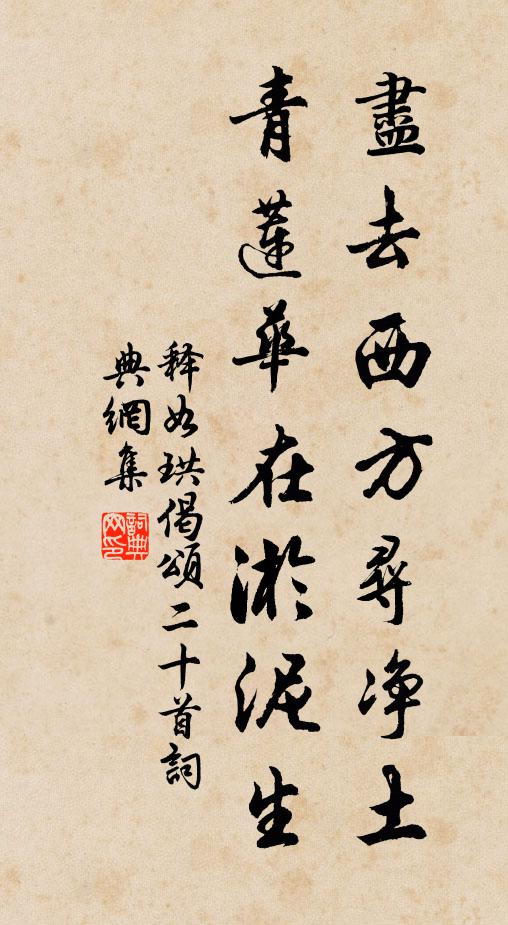 盡去西方尋净土
青蓮華在淤泥生
释如珙偈頌二十首詞
典網集
詞典
网印